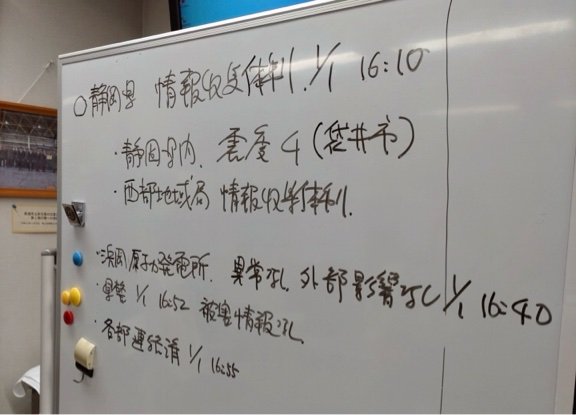 ○静岡県 情報収集体制 1/1 16:10
・静岡県内、震度4(袋井市)
・西部地域局 情報収集体制
・浜岡原子力発電所、異常なし、外部影響なし 1/1 16:40
・県警 1/1 16:52 被害情報なし
・各部運絡済 1/1 16:55